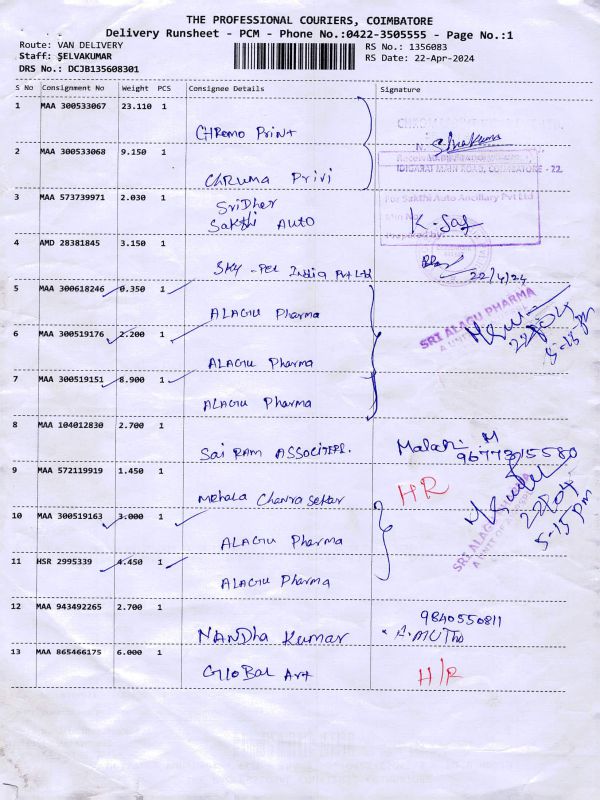 THE PROFESSIONAL COURIERS, COIMBATORE
Delivery Runsheet - PCM - Phone No.:0422-3505555 - Page No.:1
Route: VAN DELIVERY
RS No.: 1356083
Staff: SELVAKUMAR
RS Date: 22-Apr-2024
DRS No.: DCJB135608301
S No Consignment No Weight PCS Consignee Details Signature
1 MAA 300533067 23.110 1
CHROMO Print
2 MAA 300533068 9.150 1
IDIGARAI MAIN ROAD, COIMBATORE - 22.
CHRUMA Privi
3 MAA 573739971 2.030 1
For Sakthi Auto Ancillary Pvt Ltd
SriDher
Sakthi AUTO
4 AMD 28381845 3.150 1
SKY-PEL India Pvt Ltd
22/4/24
5 MAA 300618246 0.350 1
SRI ALAGU PHARMA
ALAGU Pharma
22/04
5-15 pm
6 MAA 300519176 2.200 1
ALAGU Pharma
7 MAA 300519151 8.900 1
ALAGU Pharma
8 MAA 104012830 2.700 1
Sai RAM ASSOCITERS.
Malathi. M
9677315580
9 MAA 572119919 1.450 1
Mehala Chandra Sekar
HR
10 MAA 300519163 3.000 1
22/04
5-15 pm
SRI ALAGU
ALAGU Pharma
11 HSR 2995339 4.450 1
ALAGU Pharma
12 MAA 943492265 2.700 1
9840550811
NANDha Kumar
A. MUTHU
13 MAA 865466175 6.000 1
GLOBAL Art
H/R